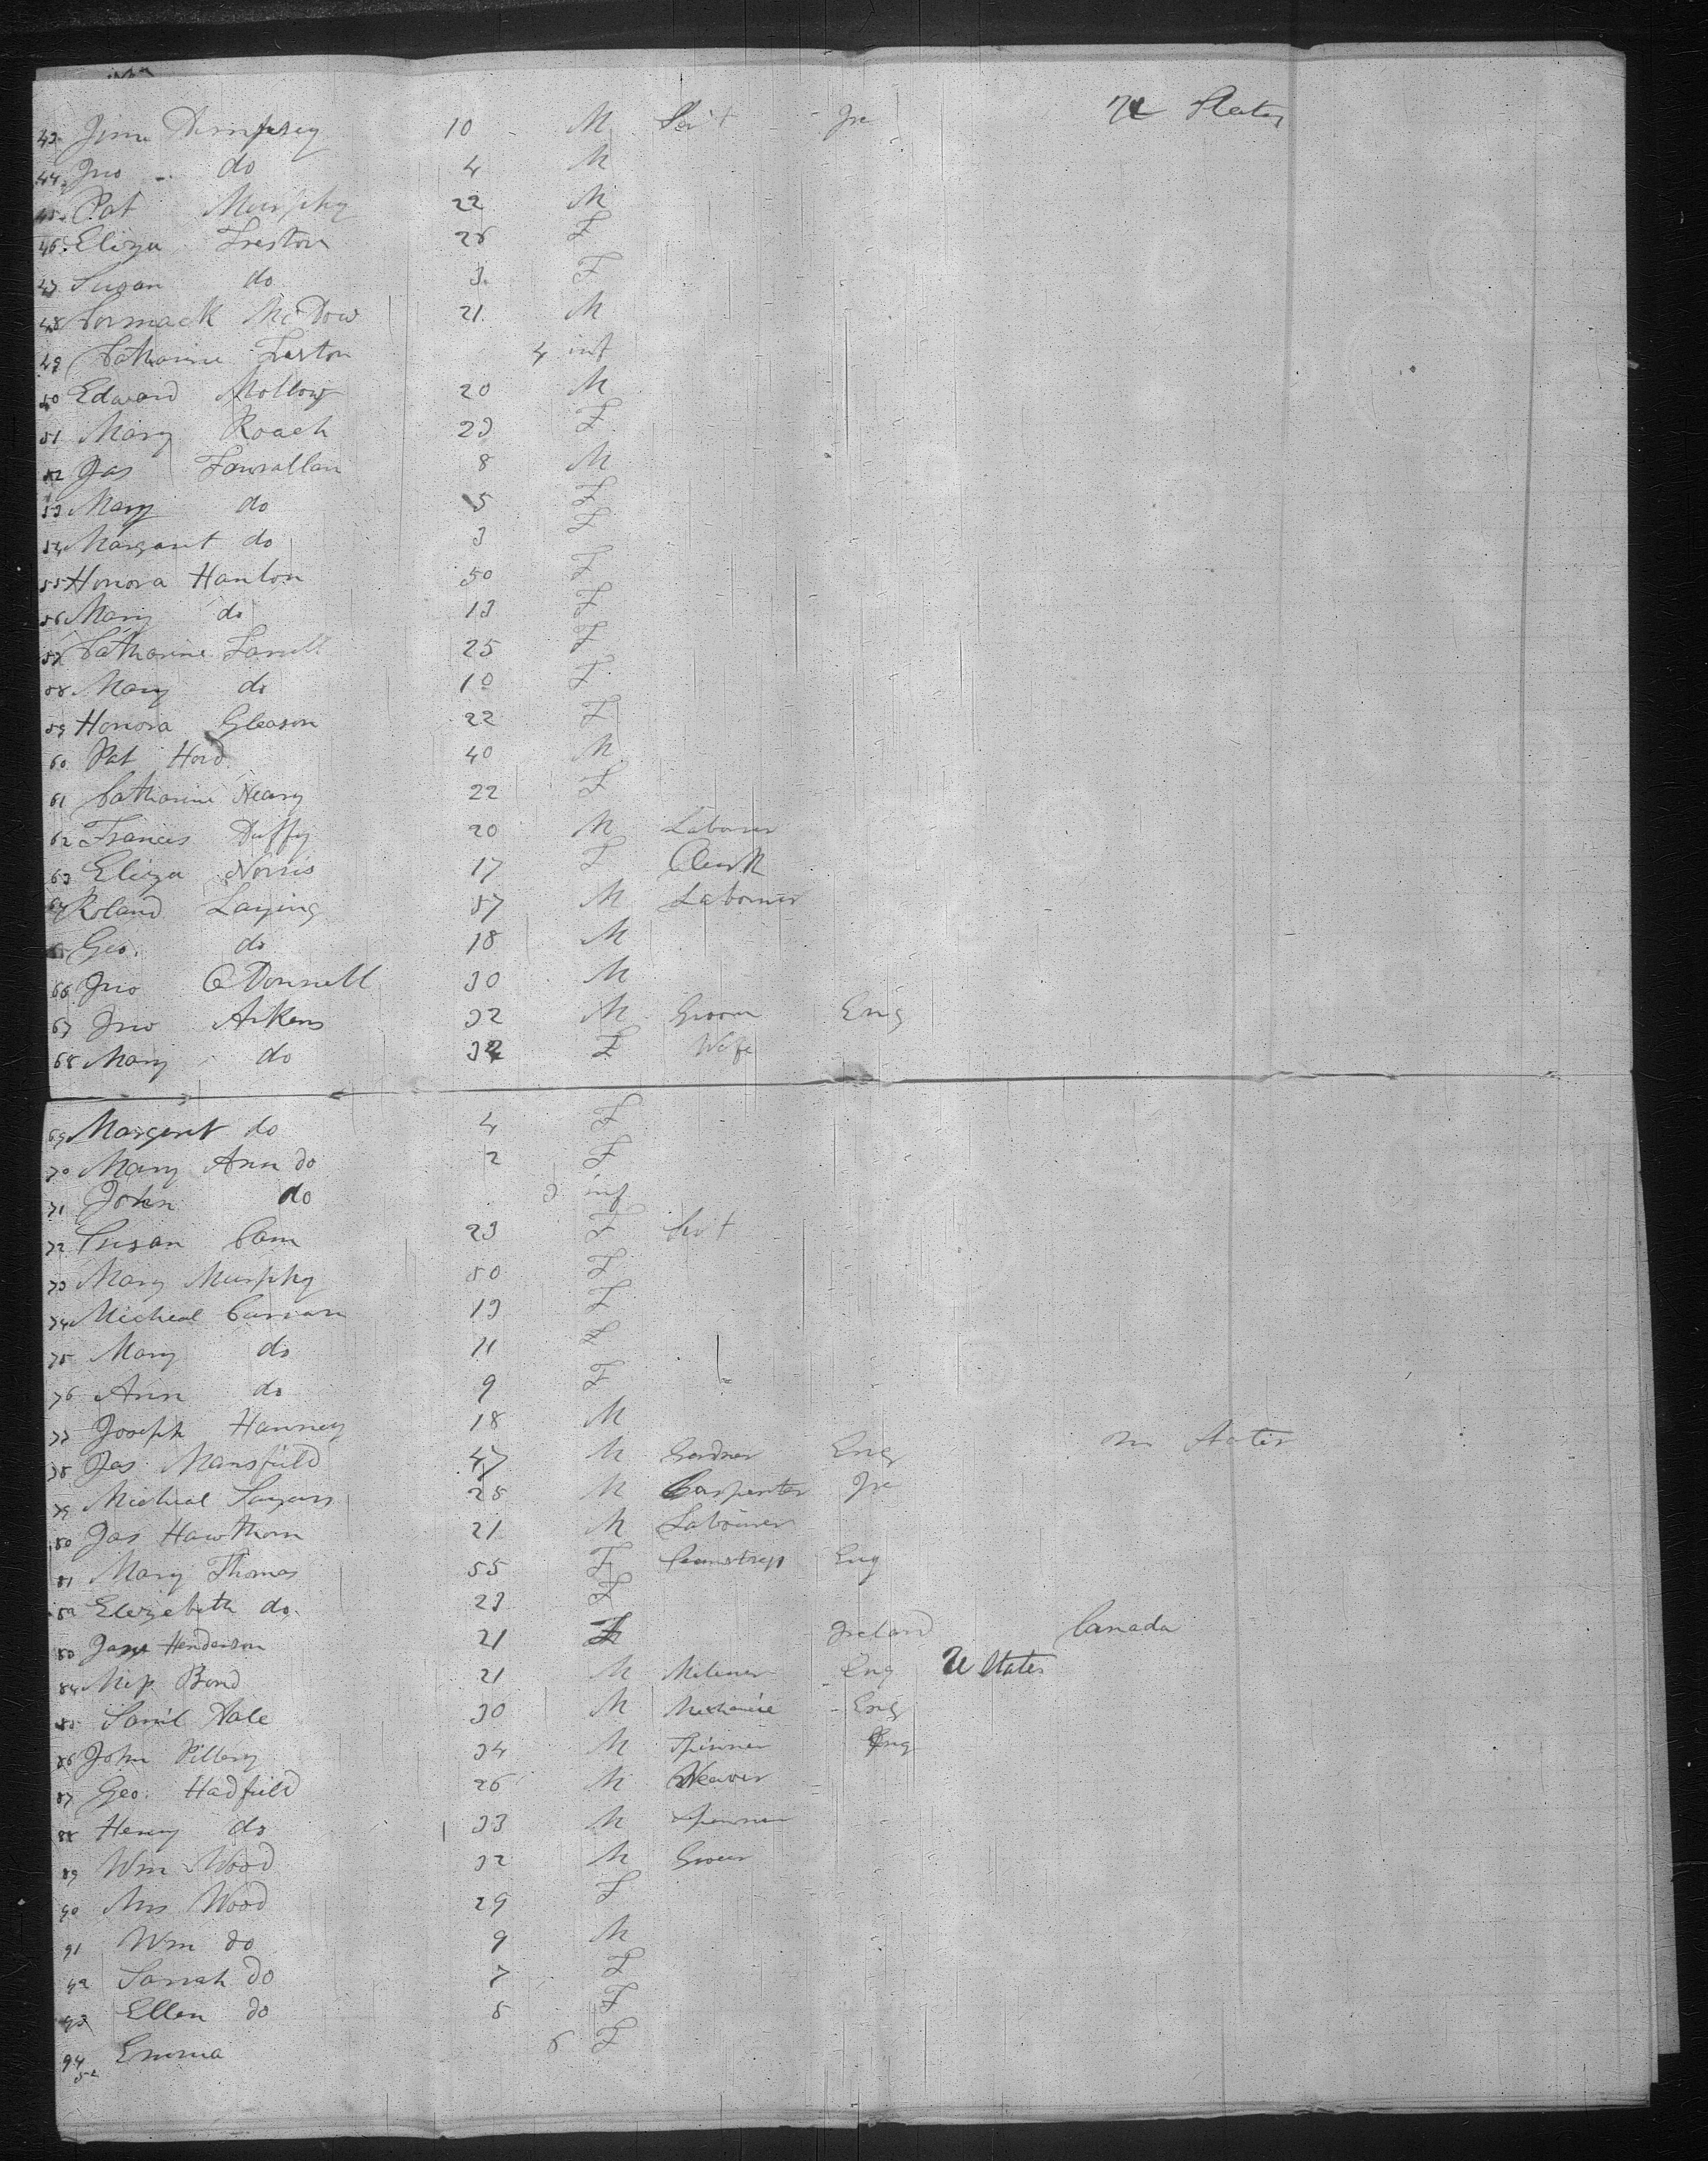 43 Dempsey 10 M Serv't Ire U States
44 Jno do 4 M
45 Pat Murphy 22 M
46 Eliza Freston 26 F
47 Susan do 3 F
48 Cormack McDow 21 M
49 Catharine 4 inf
50 Edward Molloy 20 M
51 Mary Roach 23 F
52 Jas 8 M
53 Mary do 5 F
54 Margaret do 3 F
55 Honora Hanlon 50 F
56 Mary do 13 F
57 Catharine Farrell 25 F
58 Mary do 10 F
59 Honora Gleason 22 F
60 Pat Hord 40 M
61 Catharine Neary 22 F
62 Frances Duffy 20 M Laborer
63 Eliza Norris 17 F Clerk
64 Roland Laying 57 M Labourer
65 Geo. do 18 M
66 Jno O Donnell 30 M
67 Jno Aikens 32 M Groom Eng
68 Mary do 32 F Wife
69 Margaret do 4 F
70 Mary Ann do 2 F
71 John do 3 inf
72 Susan Cam 23 F Servt
73 Mary Murphy 50 F
74 Micheal Curran 13 F
75 Mary do 11 F
76 Ann do 9 F
77 Joseph Hanney 18 M
78 Jas Mansfield 47 M Gardner Eng States
79 Micheal Sayers 28 M Carpenter Ire
80 Jas Hawthorn 21 M Labourer
81 Mary Thomas 55 F Seamstress Eng
82 Elizebeth do. 23 F
83 Jane Henderson 21 F Ireland Canada
84 Miss Bond 21 M Miliner Eng U States
85 Saml Hale 30 M Mechanic Eng
86 John Pillery 34 M Spinner Eng
87 Geo. Hadfield 26 M Weaver
88 Henry do 33 M Spinner
89 Wm Wood 32 M Grocer
90 Mrs Wood 29 F
91 Wm do 9 M
92 Sarrah do 7 F
93 Ellen do 5 F
94 Emma 6 F
52